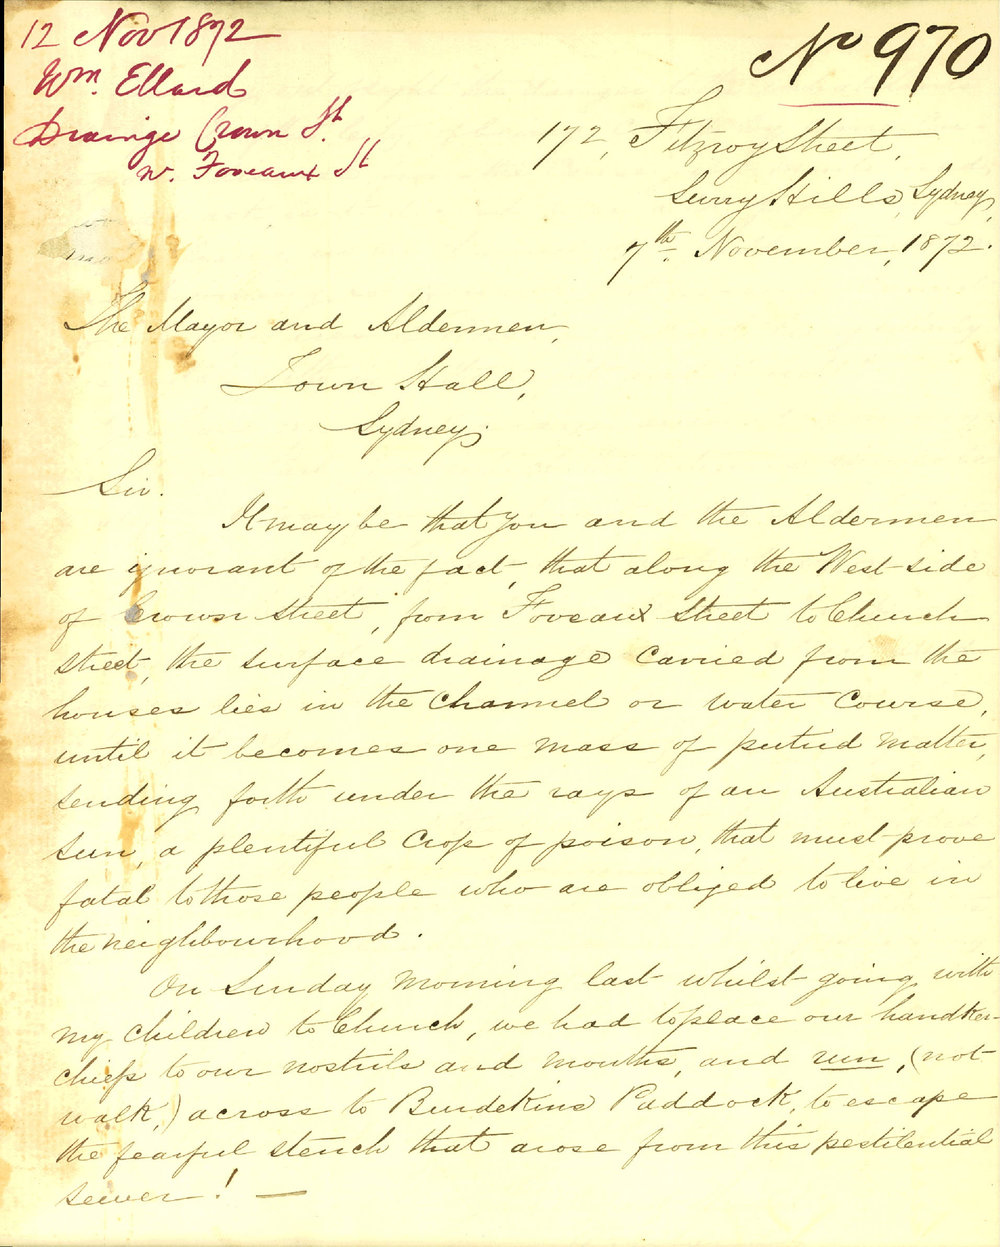 12 Nov 1872
Wm. Ellard
Drainige Crown St.
n. Foveaux St
No 970
172, Fitzroy Street,
Surry Hills, Sydney,
7th. November, 1872.
The Mayor and Aldermen,
Town Hall,
Sydney.
Sir.
It may be that you and the Aldermen
are ignorant of the fact, that along the West side
of Crown Street, from Foveaux Street to Church
street, the surface drainage carried from the
houses lies in the channel or water course,
until it becomes one mass of putrid matter,
sending forth under the rays of an Australian
sun, a plentiful crop of poison, that must prove
fatal to those people who are obliged to live in
the neighbourhood.
On Sunday morning last whilst going with
my children to Church, we had to place our handker-
chiefs to our nostrils and mouths, and run, (not
walk,) across to Burdekins Paddock, to escape
the fearful stench that arose from this pestilential
sewer! —